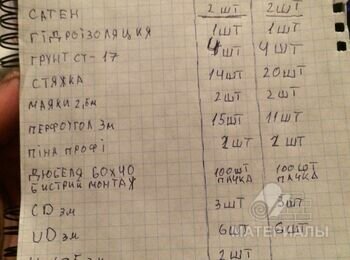 САТЕН 2 ШТ 2 ШТ
ГІДРОІЗОЛЯЦИЯ 1 ШТ 1 ШТ
ГРУНТ СТ-17 4 ШТ 4 ШТ
СТЯЖКА 14 ШТ 20 ШТ
МАЯКИ 2,6м 2 ШТ 2 ШТ
ПЕРФОУГОЛ 3м 15 ШТ 11 ШТ
ПІНА ПРОФІ 2 ШТ 2 ШТ
ДЮБЕЛЯ 60X40 100 ШТ 100 ШТ
БИСТРИЙ МОНТАЖ ПАЧКА ПАЧКА
CD 3м 3 ШТ 3 ШТ
UD 3м 6 ШТ 6 ШТ
МАТЕРИАЛЫ
2 ШТ